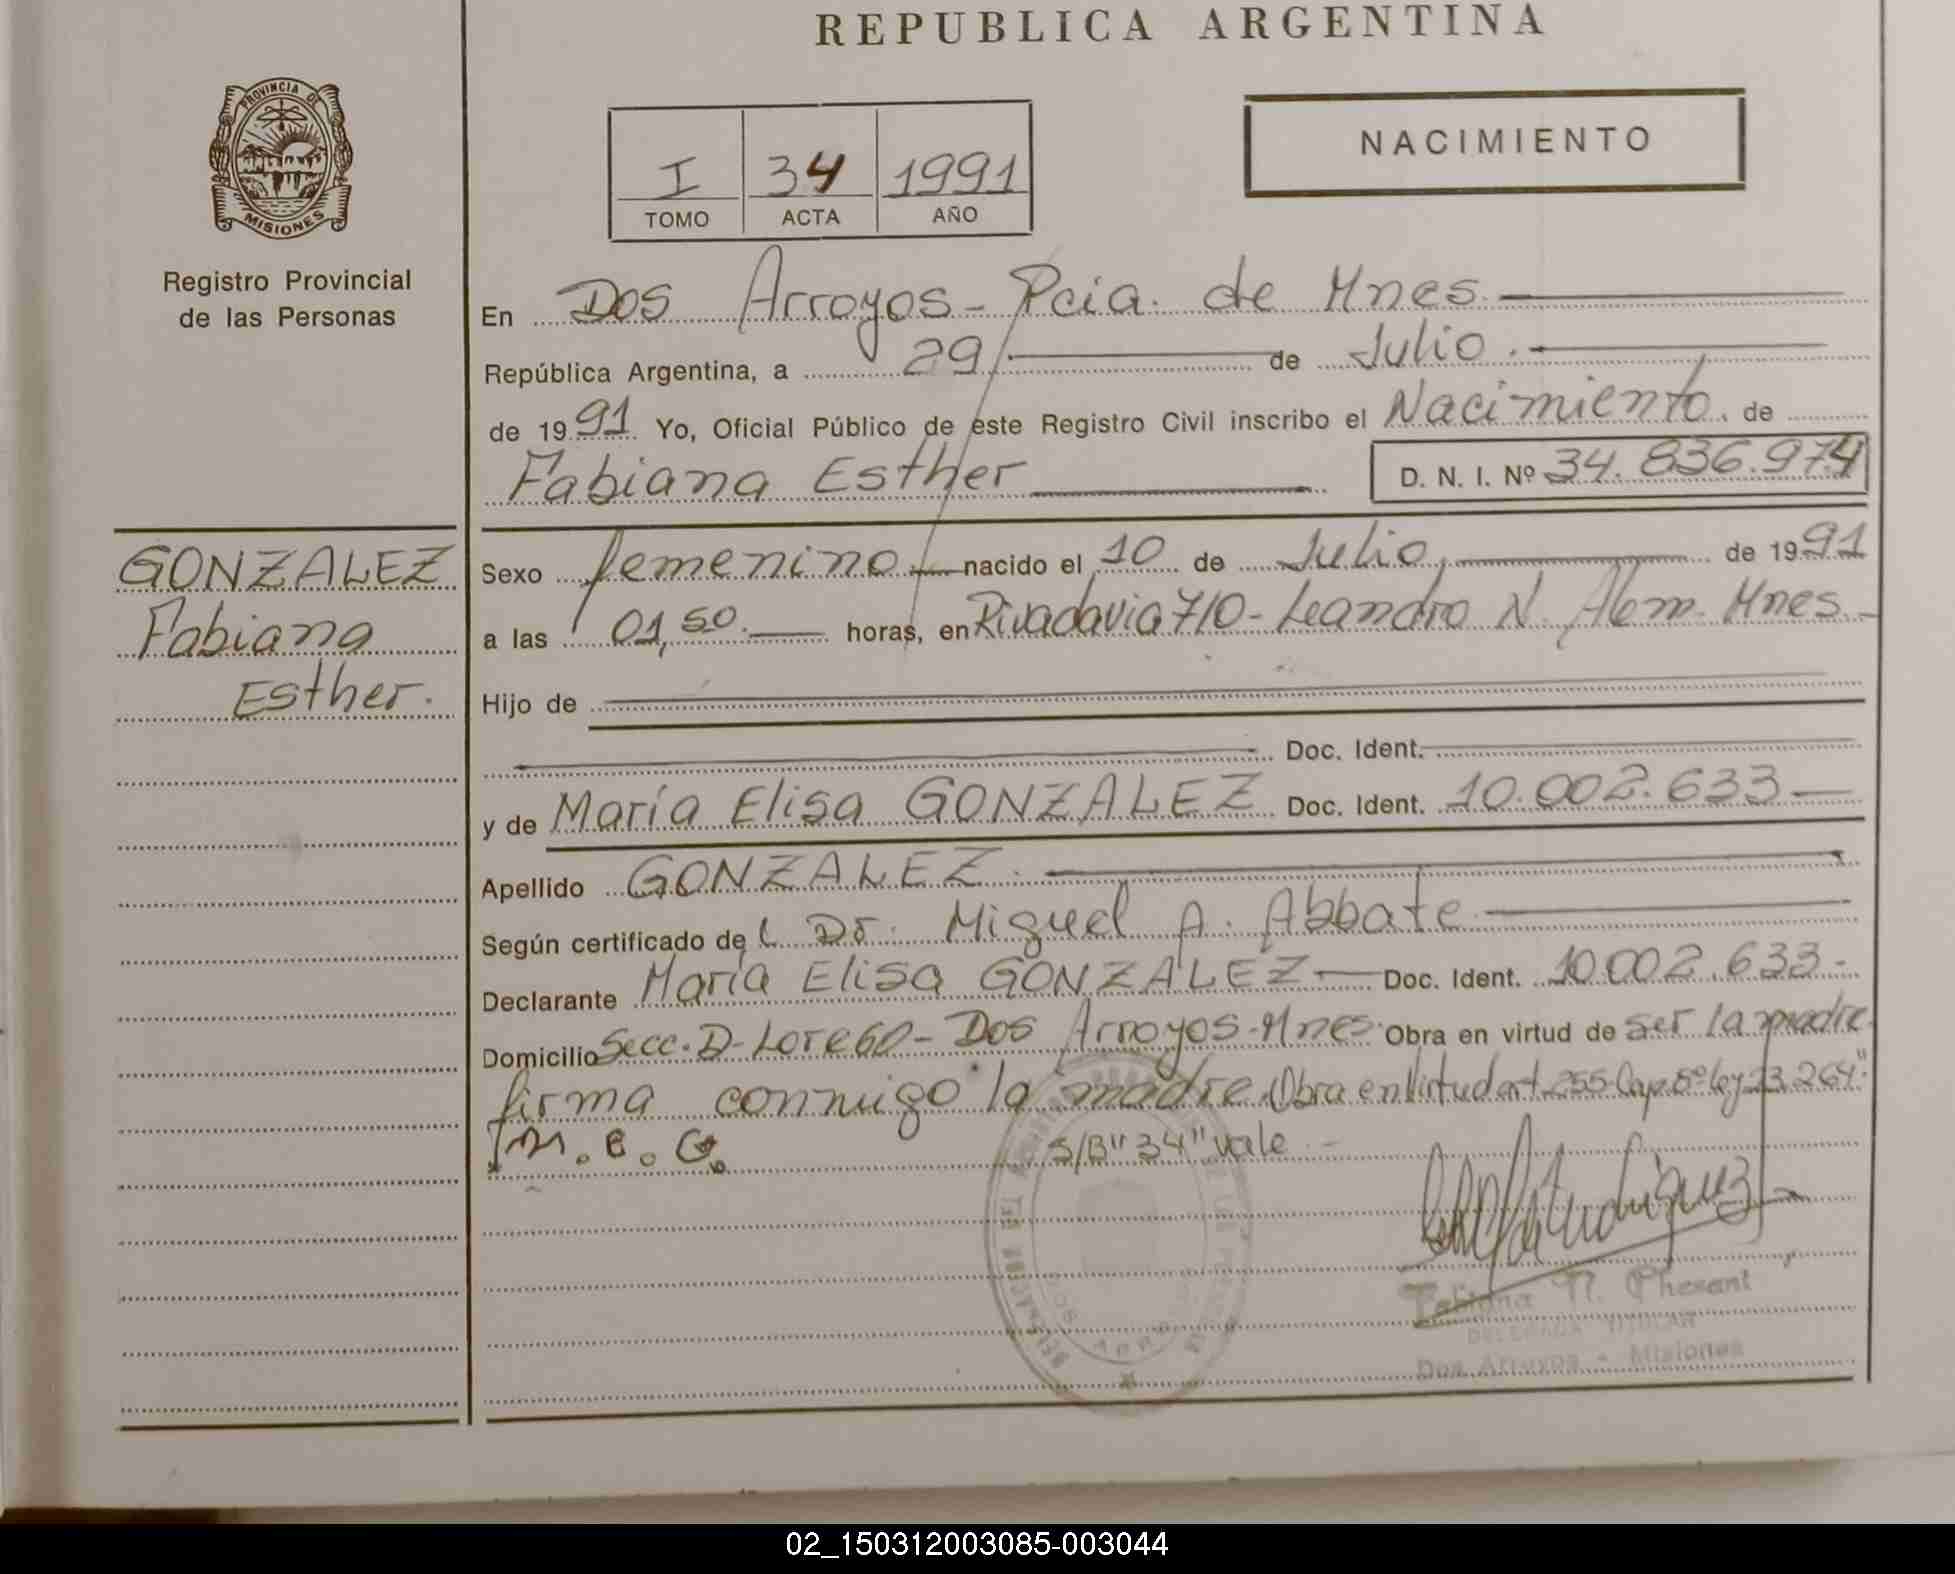 REPUBLICA ARGENTINA
PROVINCIA DE
MISIONES
Registro Provincial
de las Personas
I 34 1991
TOMO ACTA AÑO
NACIMIENTO
En Dos Arroyos - Pcia. de Mnes.
República Argentina, a 29 de Julio.
de 1991 Yo, Oficial Público de este Registro Civil inscribo el Nacimiento de
Fabiana Esther D. N. I. Nº 34.836.974
GONZALEZ
Fabiana
Esther.
Sexo femenino nacido el 10 de Julio, de 1991
a las 01,50. horas, en Rivadavia 710 - Leandro N. Alem. Mnes.
Hijo de
Doc. Ident.
y de María Elisa GONZALEZ Doc. Ident. 10.002.633
Apellido GONZALEZ.
Según certificado del Dr. Miguel A. Abbate
Declarante María Elisa GONZALEZ Doc. Ident. 10.002.633-
Domicilio Secc. D- Lote 60 - Dos Arroyos - Mnes. Obra en virtud de ser la madre
firma conmigo la madre. Obra en Virtud art. 255 Cap. 5º ley 23.264"
M. E. G. S/B "34" vale.-
Phesant
DELEGADA TITULAR
Dos Arroyos - Misiones
02_150312003085-003044